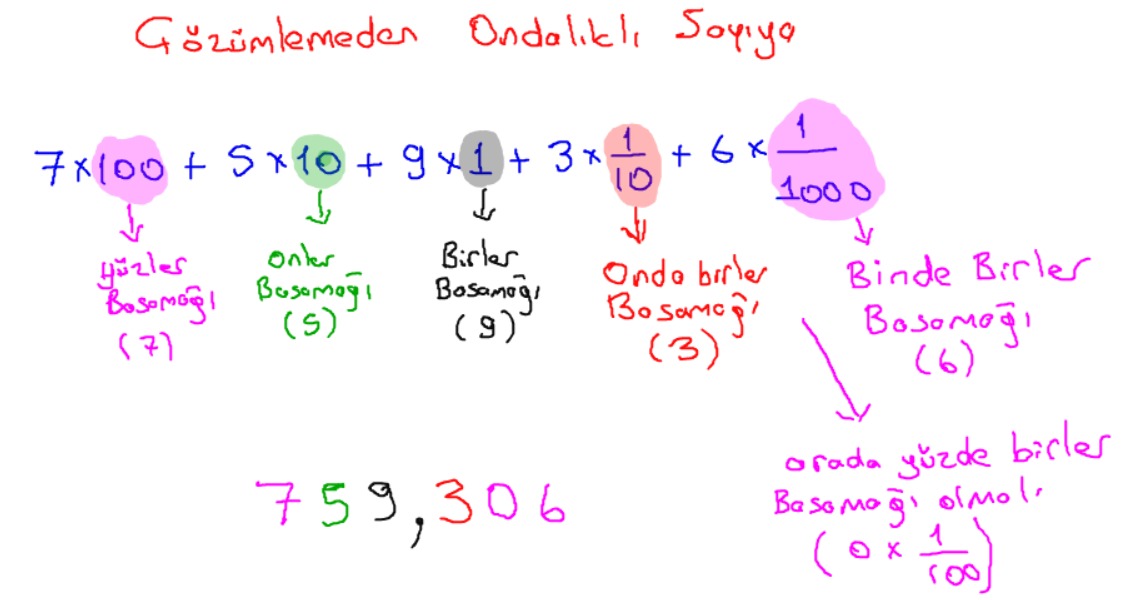 Çözümlemeden Ondalıklı Sayıya
7×100 + 5×10 + 9×1 + 3×1/10 + 6×1/1000
yüzler Basamağı (7)
onlar Basamağı (5)
Birler Basamağı (9)
Onda birler Basamağı (3)
Binde Birler Basamağı (6)
arada yüzde birler
Basamağı olmalı
(0 × 1/100)
759,306